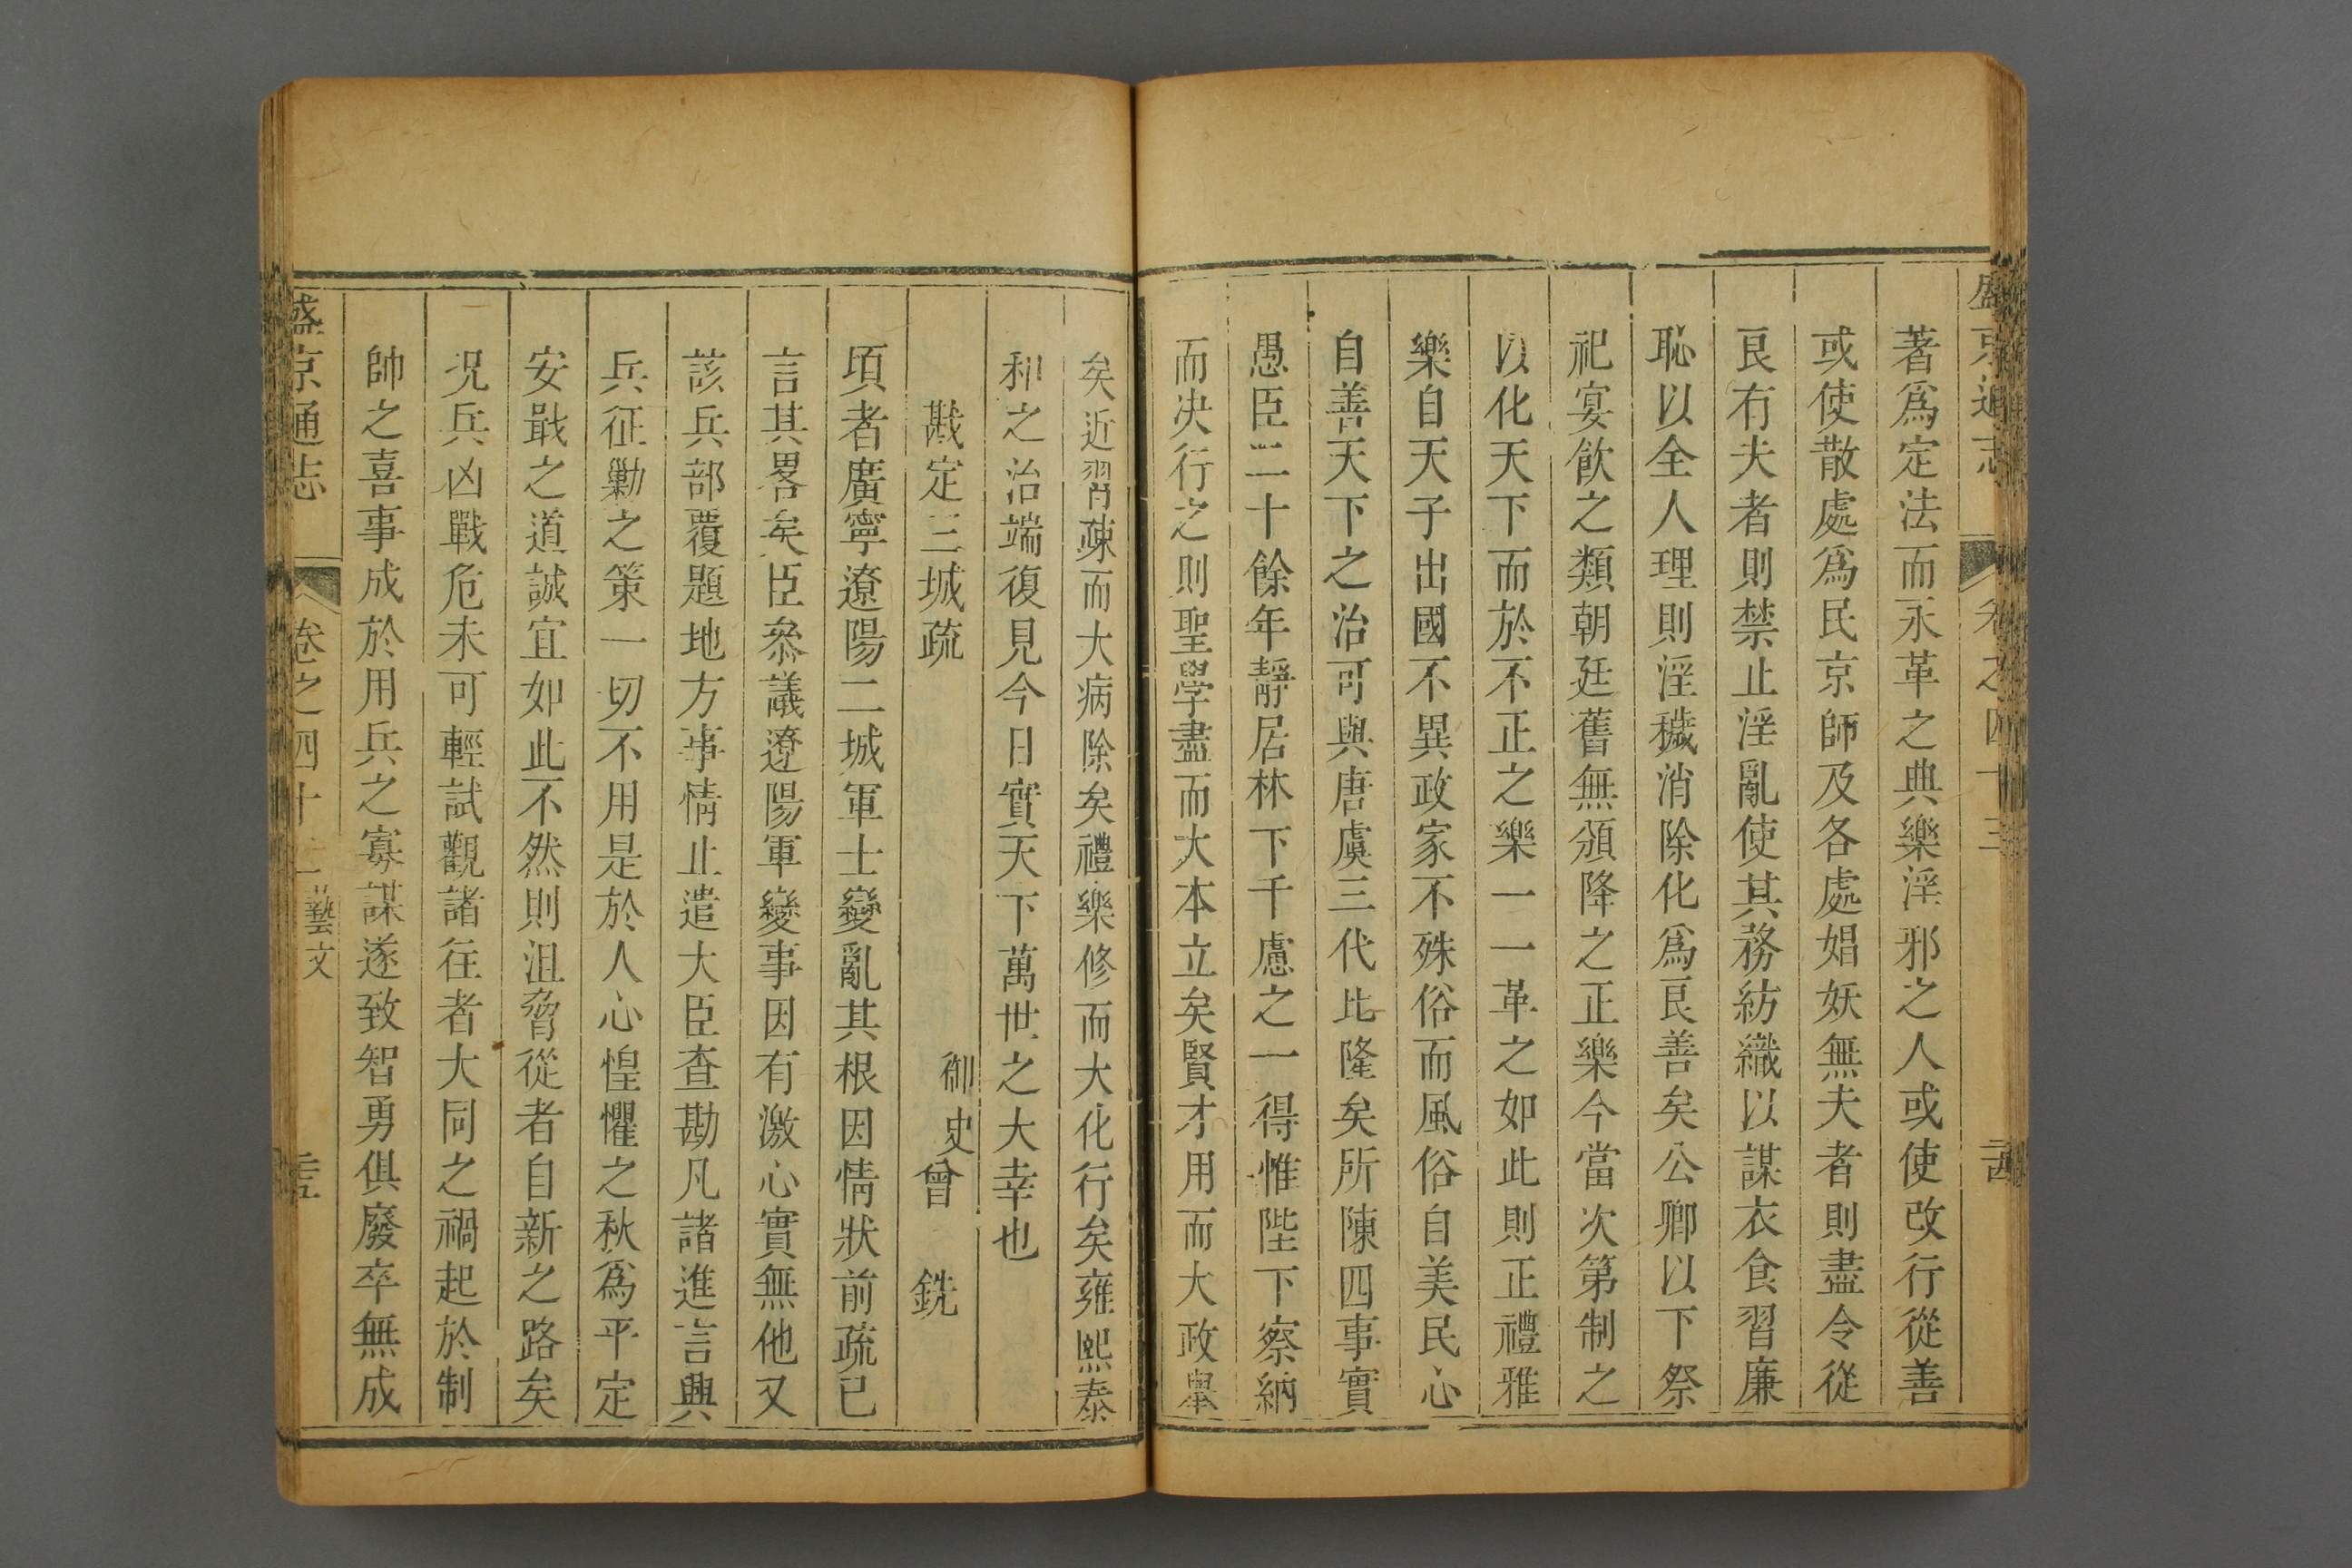 盛京通志 卷之四十三 二十四
著爲定法而永革之典樂淫邪之人或使改行從善
或使散處爲民京師及各處娼妖無夫者則盡令從
良有夫者則禁止淫亂使其務紡織以謀衣食習廉
恥以全人理則淫穢消除化爲良善矣公卿以下祭
祀宴飲之類朝廷舊無頒降之正樂今當次第制之
以化天下而於不正之樂一一革之如此則正禮雅
樂自天子出國不異政家不殊俗而風俗自美民心
自善天下之治可與唐虞三代比隆矣所陳四事實
愚臣二十餘年靜居林下千慮之一得惟陛下察納
而决行之則聖學盡而大本立矣賢才用而大政舉
矣近習疎而大病除矣禮樂修而大化行矣雍熙泰
和之治端復見今日實天下萬世之大幸也
戡定三城疏 御史曾銑
項者廣寧遼陽二城軍士變亂其根因情狀前疏已
言其畧矣臣叅議遼陽軍變事因有激心實無他又
該兵部覆題地方事情止遣大臣查勘凡諸進言興
兵征勦之策一切不用是於人心惶懼之秋爲平定
安戢之道誠宜如此不然則沮脅從者自新之路矣
况兵凶戰危未可輕試觀諸往者大同之禍起於制
帥之喜事成於用兵之寡謀遂致智勇俱廢卒無成
盛京通志 卷之四十 藝文 二十五